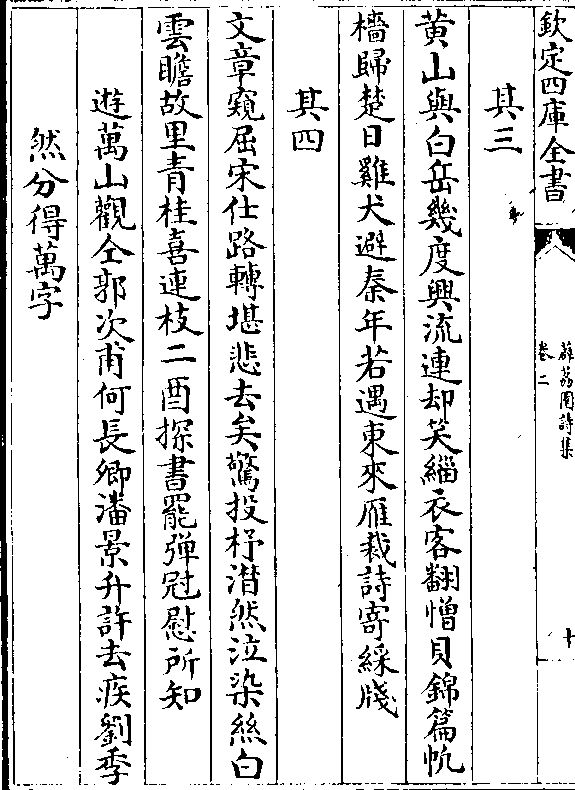 欽定四庫全書
薜荔園詩集
卷二
十
其三
黄山與白岳幾度興流連却笑緇衣客翻憎貝錦篇帆
檣歸楚日雞犬避秦年若遇東來雁裁詩寄綵牋
其四
文章窺屈宋仕路轉堪悲去矣驚投杼潸然泣染絲白
雲瞻故里青桂喜連枝二酉探書罷彈冠慰所知
遊萬山觀仝郭次甫何長卿潘景升許去疾劉季
然分得萬字